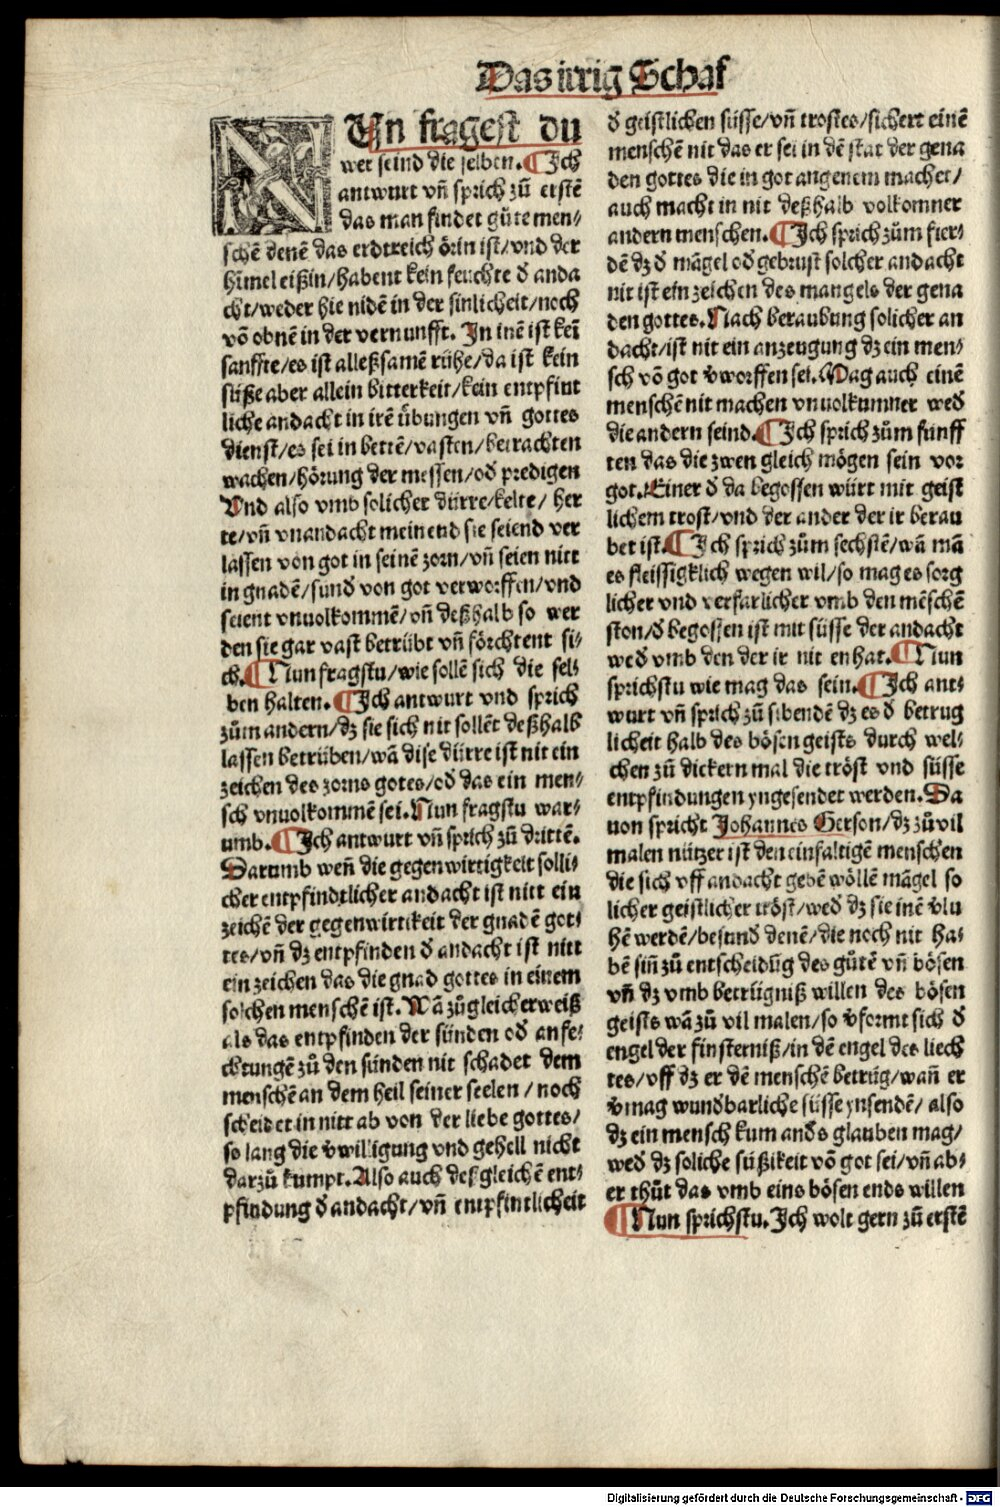 Das irrig Schaf
NUn fragest du
wer seind die selben. ¶ Ich
antwurt vñ sprich zů erstē
das man findet gůte men⸗
schē denē das erdtreich örin ist/vnd der
hīmel eißin/habent kein feuchte ð anda
cht/weder hie nidē in der sinlicheit/noch
vō obnē in der vernunfft. In inē ist keī
sanffte/es ist alleßsamē rühe/da ist kein
süße aber allein bitterkeit/kein entpfint
liche andacht in irē übungen vñ gottes
dienst/es sei in bettē/vasten/betrachten
wachen/hörung der messen/oð predigen
Vnd also vmb solicher dürre/kelte/ her
te/vñ vnandacht meinend sie seiend ver
lassen von got in seinē zorn/vñ seien nitt
in gnadē/sunð von got verworffen/vnd
seient vnuolkommē/vñ deßhalb so wer
den sie gar vast betrübt vñ förchtent si⸗
ch. ¶ Nun fragstu/wie sollē sich die sel⸗
ben halten. ¶ Ich antwurt vnd sprich
zům andern/dz sie sich nit sollēt deßhalb
lassen betrüben/wā dise dürre ist nit ein
zeichen des zorns gotes/oð das ein men⸗
sch vnuolkommē sei. Nun fragstu war⸗
umb. ¶ Ich antwurt vñ sprich zů drittē.
Darumb weñ die gegenwirtigkeit solli⸗
cher entpfindtlicher andacht ist nitt ein
zeichē der gegenwirtikeit der gnadē got⸗
tes/vñ dz entpfinden ð andacht ist nitt
ein zeichen das die gnad gottes in einem
solchen menschē ist. Wā zůgleicherweiß
als das entpfinden der sünden oð anfe⸗
chtungē zů den sünden nit schadet dem
menschē an dem heil seiner seelen / noch
scheidet in nitt ab von der liebe gottes/
so lang die v̄willigung vnd gehell nicht
darzů kumpt. Also auch desgleichē ent⸗
pfindung ð andacht/vñ entpfintlicheit
ð geistlichen süsse/vñ trostes/sichert einē
menschē nit das er sei in dē stat der gena
den gottes die in got angenem machet/
auch macht in nit deßhalb volkomner
andern menschen. ¶ Ich sprich zům fier⸗
dē dz ð māgel oð gebrust solcher andacht
nit ist ein zeichen des mangels der gena
den gottes. Nach beraubung solicher an
dacht/ist nit ein anzeugung dz ein men⸗
sch vō got v̄worffen sei. Mag auch einē
menschē nit machen vnuolkumner weð
die andern seind. ¶ Ich sprich zům fünff
ten das die zwen gleich mögen sein vor
got. Einer ð da begossen würt mit geist
lichem trost/vnd der ander der ir berau
bet ist. ¶ Ich sprich zům sechstē/wā mā
es fleissigklich wegen wil/so mag es sorg
licher vnd verfarlicher vmb den mēschē
ston/ð begossen ist mit süsse der andacht
weð vmb den der ir nit en hat. ¶ Nun
sprichstu wie mag das sein. ¶ Ich ant⸗
wurt vñ sprich zů sibendē dz es ð betrug
licheit halb des bösen geists durch wel⸗
chen zů dickern mal die tröst vnd süsse
entpfindungen yngesendet werden. Da
uon spricht Johannes Gerson/dz zů vil
malen nützer ist den einfaltigē menschen
die sich vff andacht gebē wöllē māgel so
licher geistlicher tröst/weð dz sie inē v̄lu
hē werdē/besunð denē/die noch nit ha⸗
bē siñ zů entscheidūg des gůtē vñ bösen
vñ dz vmb betrügniß willen des bösen
geists wā zů vil malen/so v̄formt sich ð
engel der finsterniß/in dē engel des liech
tes/vff dz er dē menschē betrüg/wañ er
v̄mag wundbarliche süsse ynsendē/ also
dz ein mensch kum anðs glauben mag/
weð dz soliche süßikeit vō got sei/vñ ab⸗
er thůt das vmb eins bösen ends willen
¶ Nun sprichstu. Ich wolt gern zů erstē
Digitalisierung gefördert durch die Deutsche Forschungsgemeinschaft - DFG